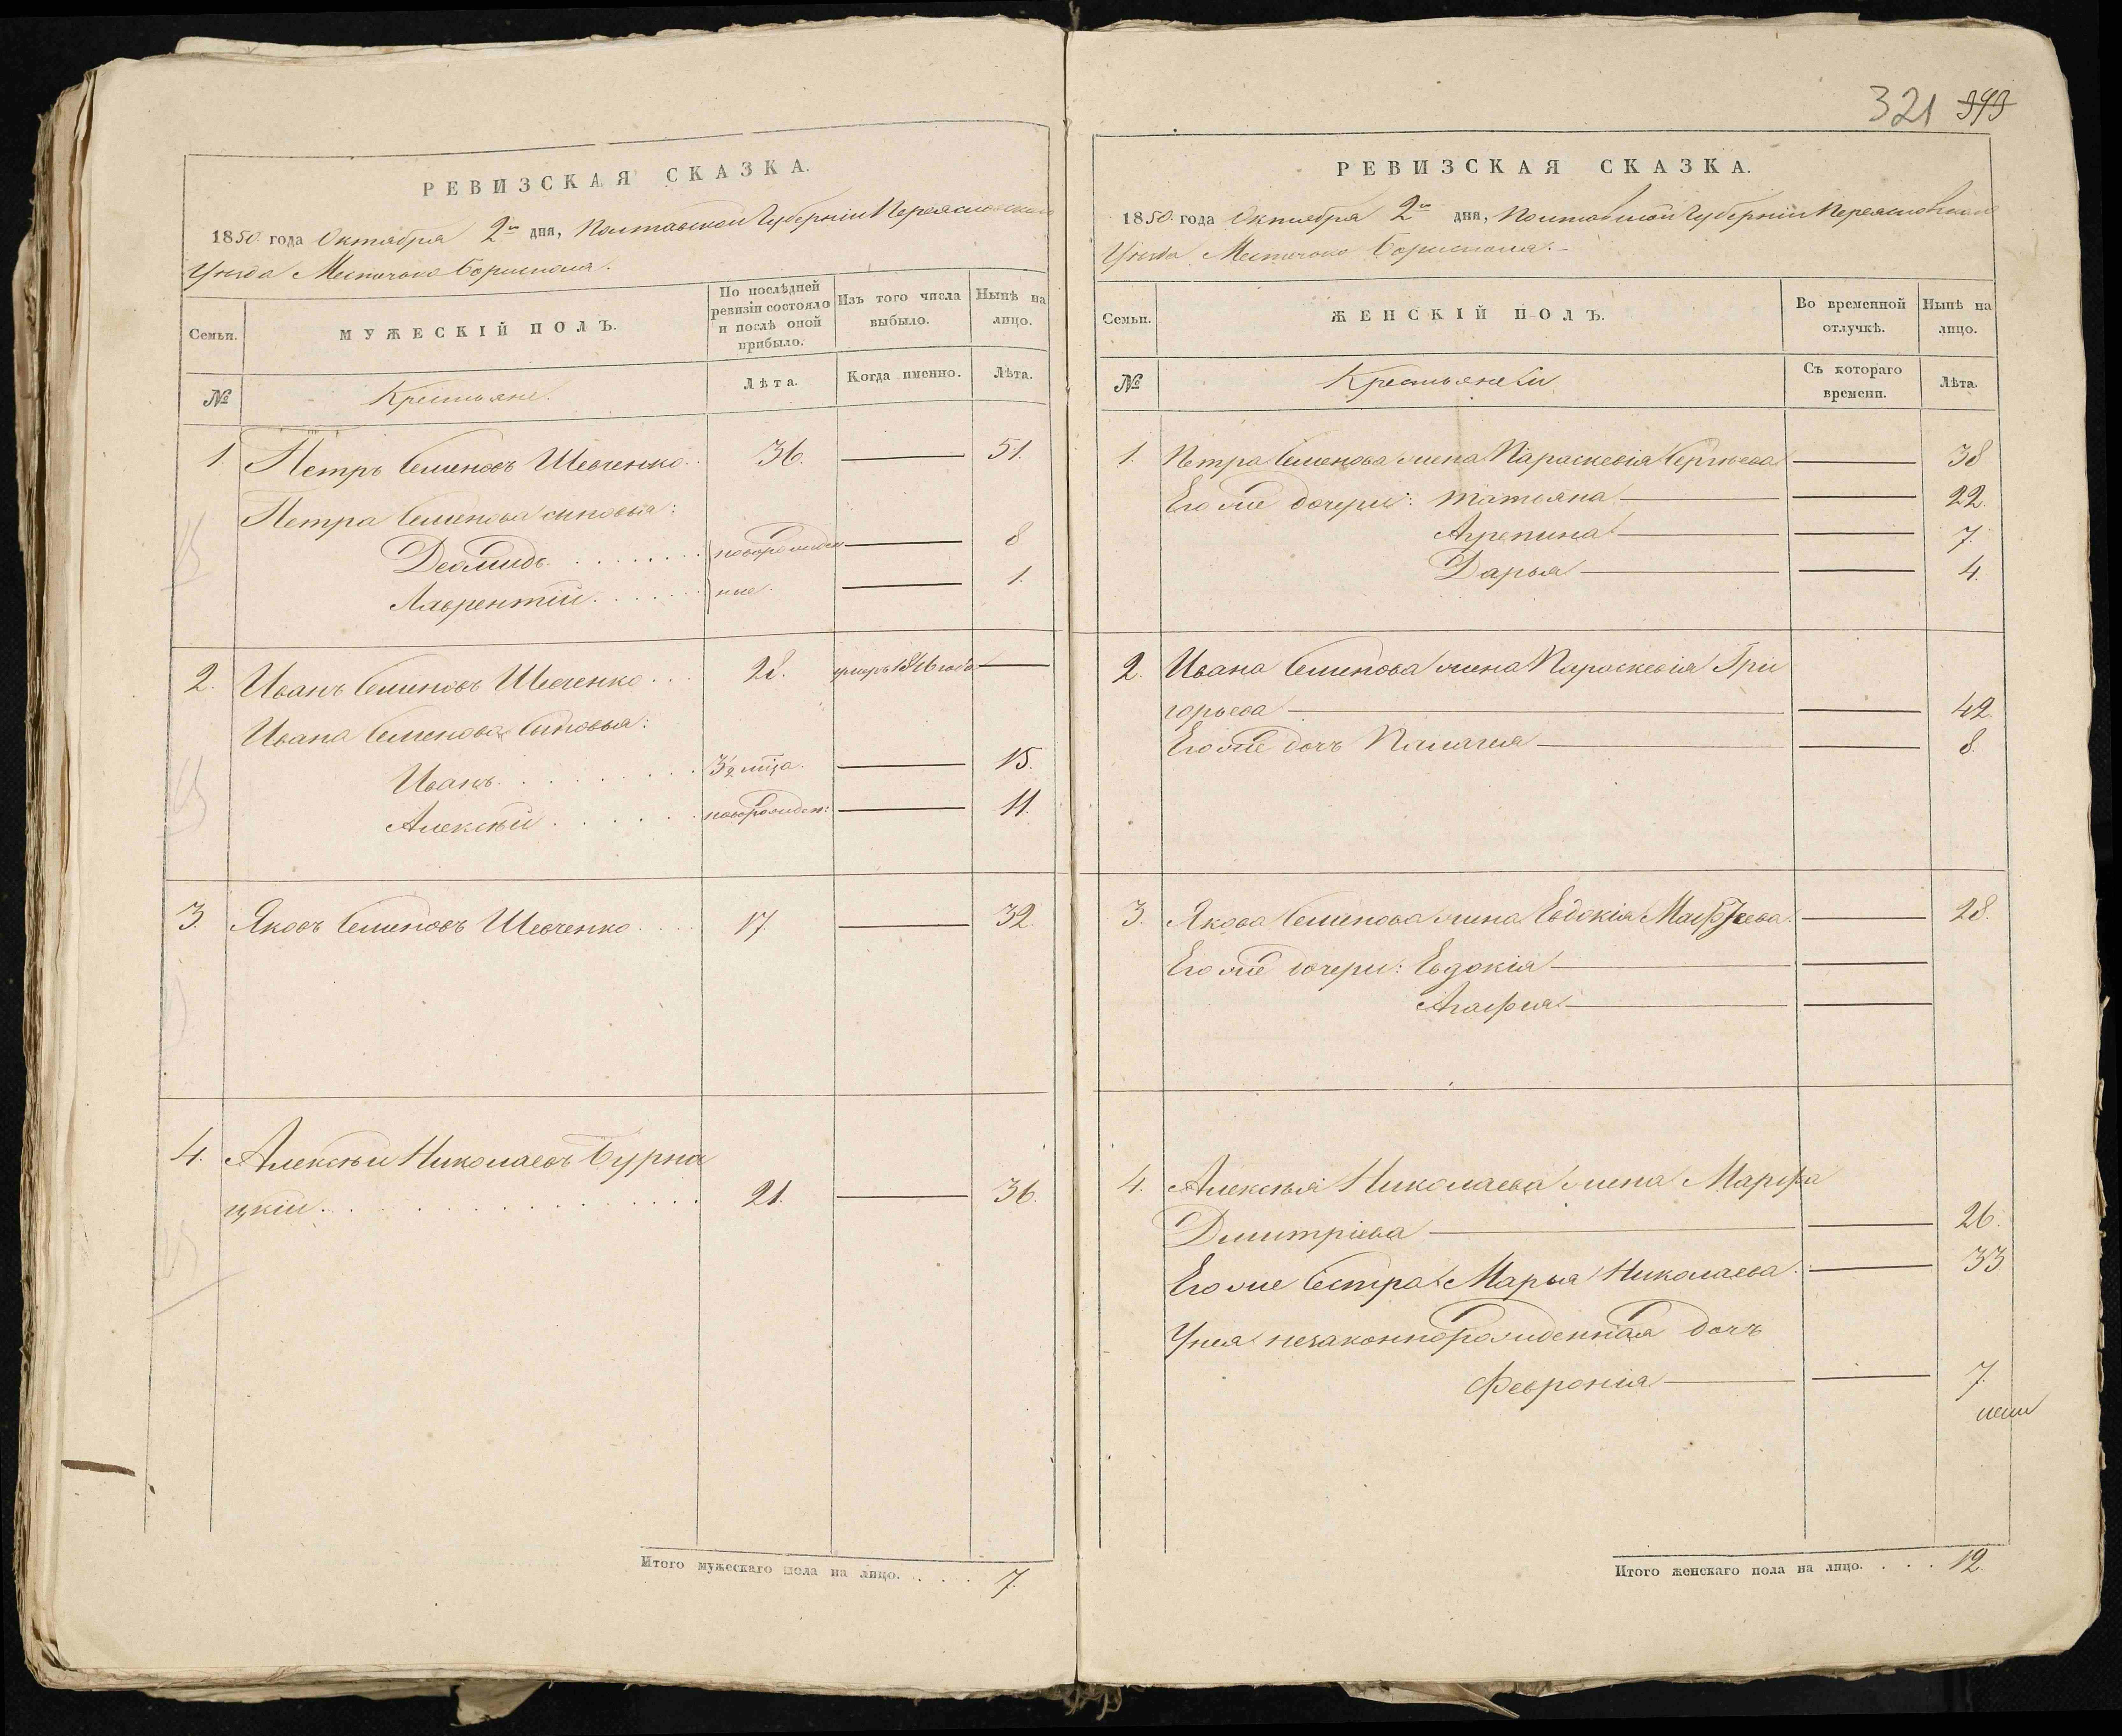 РЕВИЗСКАЯ СКАЗКА.
1850 года Октября 2го дня, Полтавской Губерніи Переяславскаго
Уѣзда Местечка Борисполя.
Семьи.
МУЖЕСКІЙ ПОЛЪ.
По послѣдней ревизіи состояло и послѣ оной прибыло.
Изъ того числа выбыло.
Нынѣ на лицо.
№
Крестьяне.
Лѣта.
Когда именно.
Лѣта.
1. Петръ Семеновъ Шевченко. 36. 51.
Петра Семенова сыновья:
Деомидъ новорожден 8
Лаврентій ные. 1.
2. Иванъ Семеновъ Шевченко 28. умеръ 1846 года
Ивана Семенова Сыновья:
Иванъ. 3½ мца. 15.
Алексѣй новорожден: 11.
3. Яковъ Семеновъ Шевченко 17. 32.
4. Алексѣй Николаевъ Бурна
цкій. 21. 36.
Итого мужескаго пола на лицо. 7.
321 393
РЕВИЗСКАЯ СКАЗКА.
1850 года Октября 2го дня, Полтавской Губерніи Переяславскаго
Уѣзда Местечка Борисполя.
Семьи.
ЖЕНСКІЙ ПОЛЪ.
Во временной отлучкѣ.
Нынѣ на лицо.
№
Крестьянки
Съ котораго времени.
Лѣта.
1. Петра Семенова жена Параскевія Сергѣева 38
Его же дочери: Татьяна 22.
Агрепина 7.
Дарья 4.
2. Ивана Семенова жена Параскевія Гри
горьева 42.
Его же дочь Палагея 8.
3. Якова Семенова жена Евдокія Матфѣева 28.
Его же дочери: Евдокія
Агафья
4. Алексѣя Николаева жена Марфа
Дмитріева 26.
Его же Сестра Марья Николаева. 33
У нея незаконнорожденная дочь
Февронія 7.
Итого женскаго пола на лицо. 12.